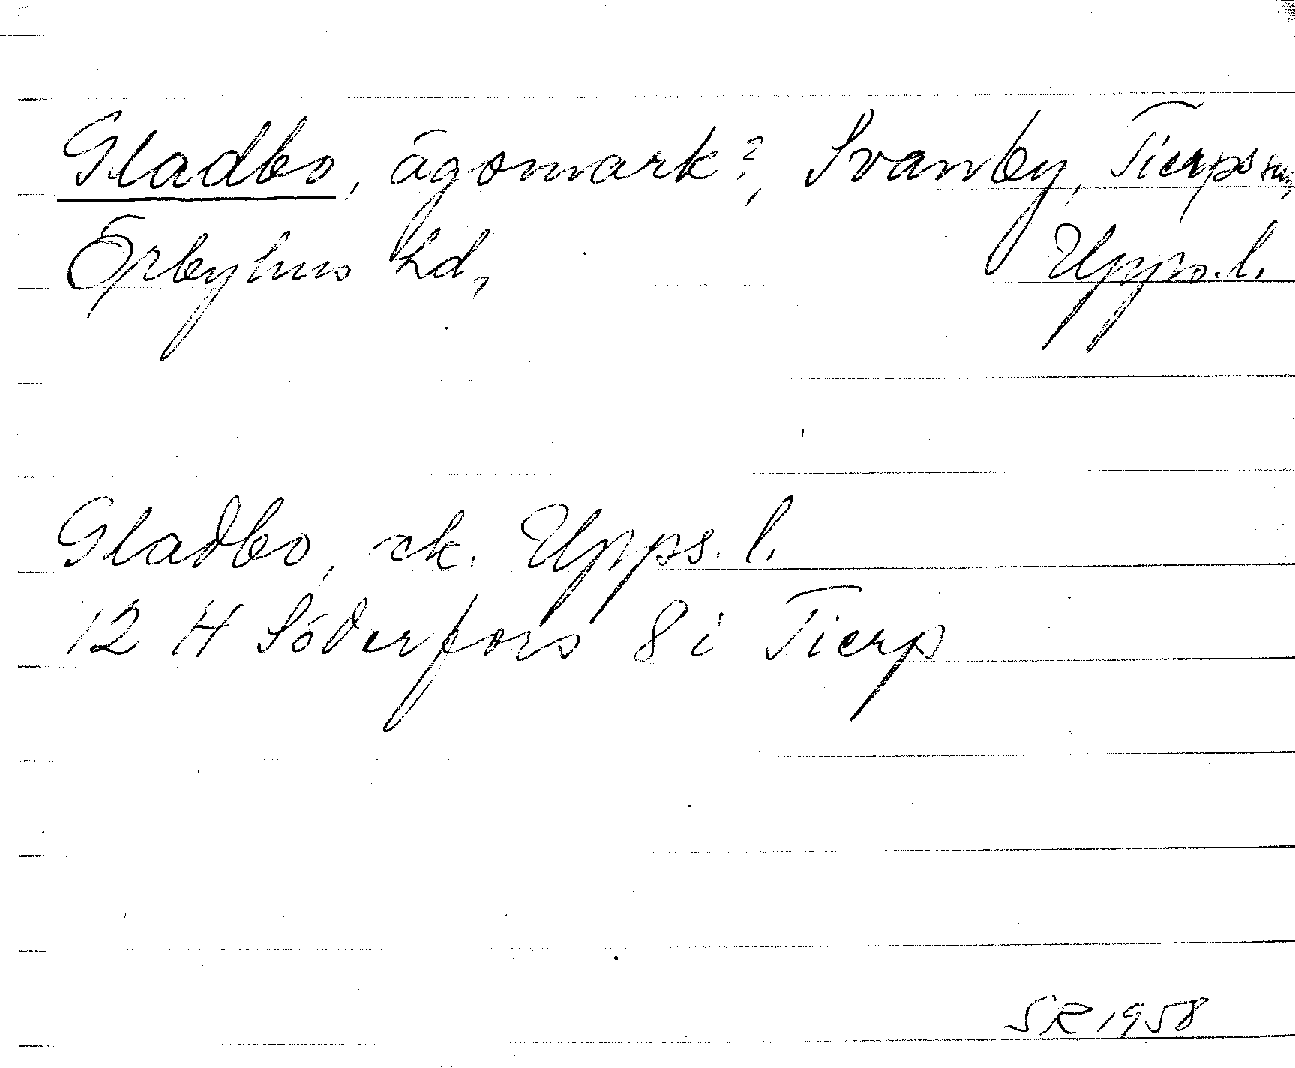 Gladbo, ägomark?, Svanby, Tierps sn,
Örbyhus hd, Upps. l.
Gladbo, ek. Upps. l.
12 H Söderfors 8 i Tierp
SR 1958